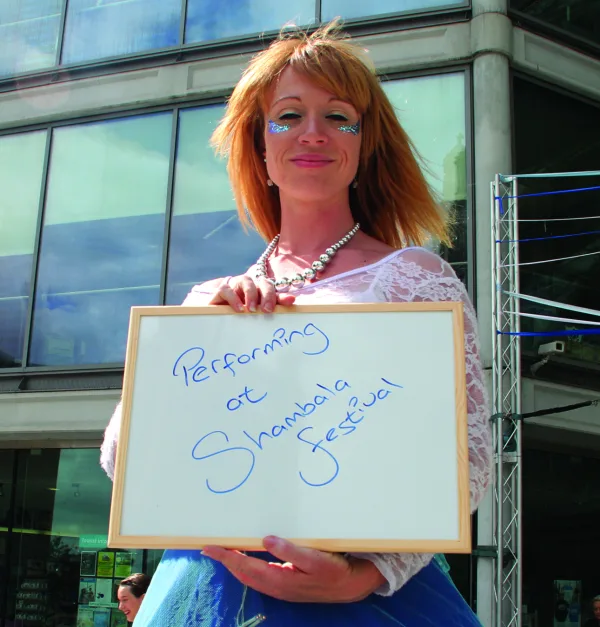 Performing
at
Shambala
festival